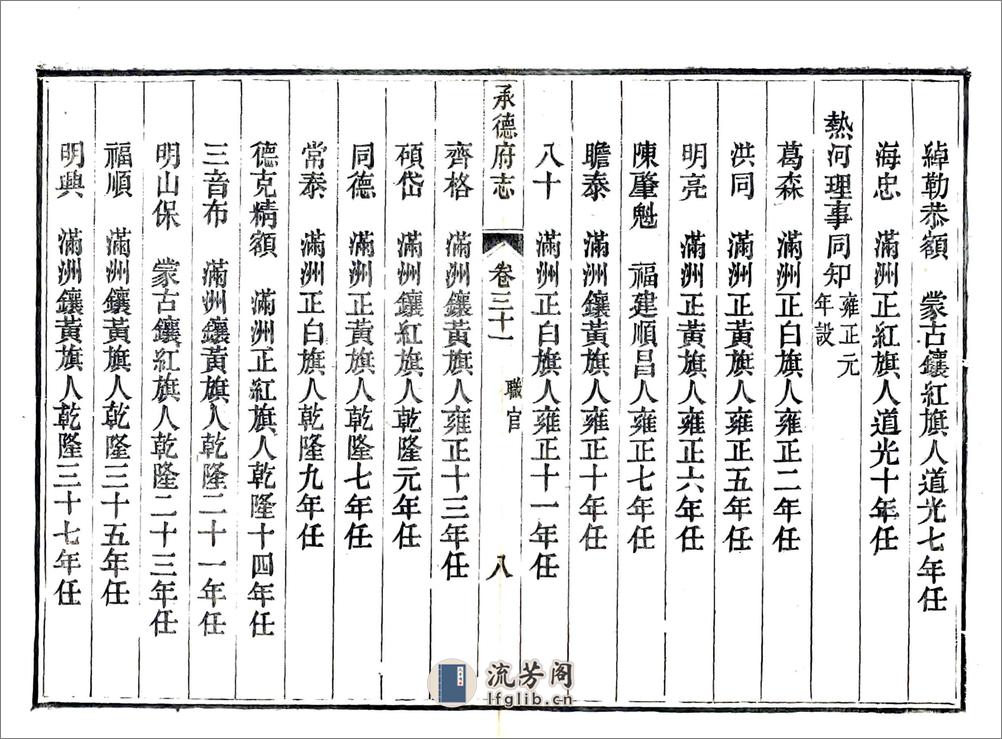 綽勒恭額　蒙古鑲紅旗人道光七年任
海忠　滿洲正紅旗人道光十年任
熱河理事同知雍正元年設
葛森　滿洲正白旗人雍正二年任
洪同　滿洲正黃旗人雍正五年任
明亮　滿洲正黃旗人雍正六年任
陳肇魁　福建順昌人雍正七年任
瞻泰　滿洲鑲黃旗人雍正十年任
八十　滿洲正白旗人雍正十一年任
承德府志　卷三十一　職官　八
齊格　滿洲鑲黃旗人雍正十三年任
碩岱　滿洲鑲紅旗人乾隆元年任
同德　滿洲正黃旗人乾隆七年任
常泰　滿洲正白旗人乾隆九年任
德克精額　滿洲正紅旗人乾隆十四年任
三音布　滿洲鑲黃旗人乾隆二十一年任
明山保　蒙古鑲紅旗人乾隆二十三年任
福順　滿洲鑲黃旗人乾隆三十五年任
明興　滿洲鑲黃旗人乾隆三十七年任
流芳阁
lfglib.cn